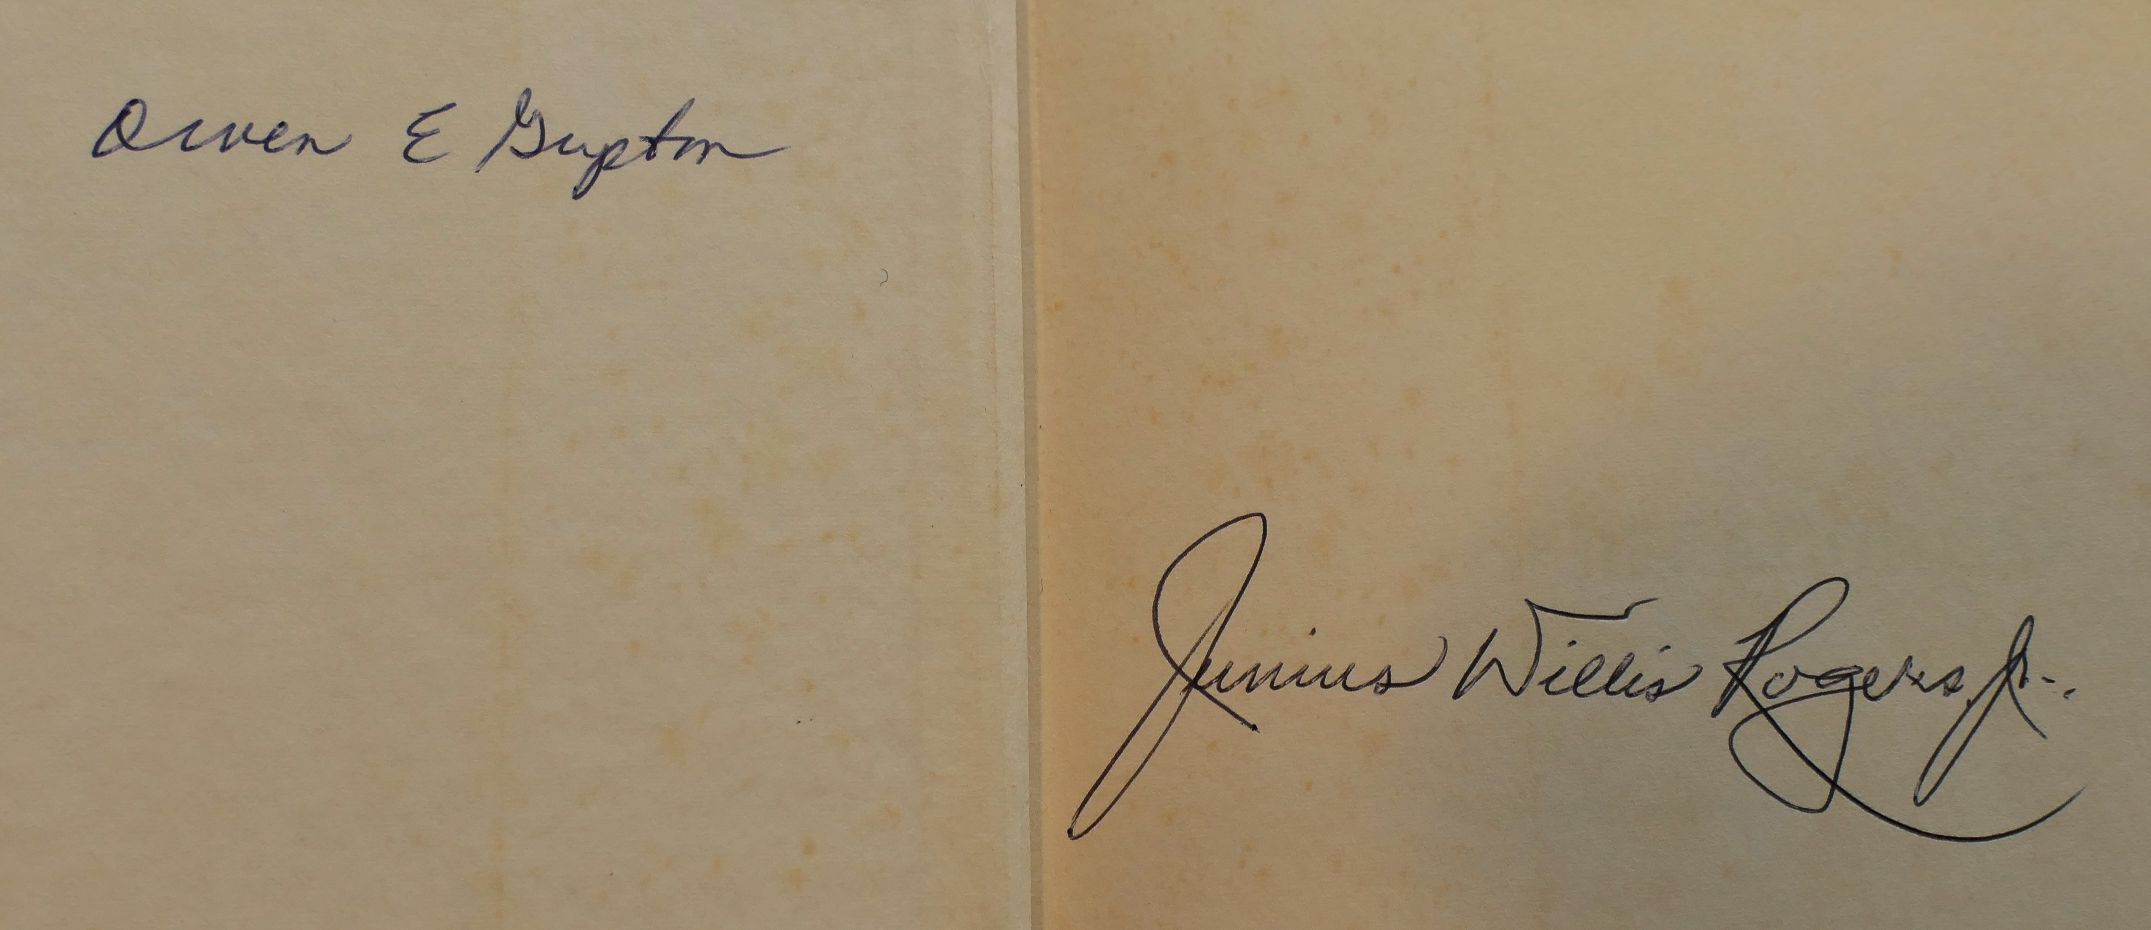 Orven E Gupton
Junius Willis Rogers, Jr.